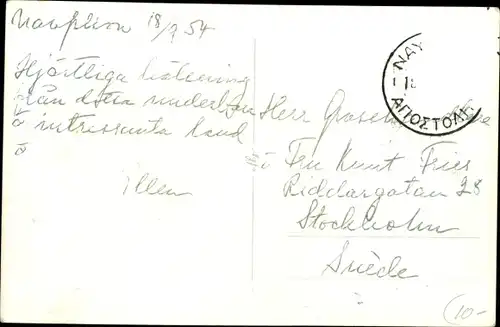 Nauplion 18/9 54
Hjärtliga hälsning
från detta underbara
o intressanta land
Ellen
ΝΑΥ
ΑΠΟΣΤΟΛΗ
Herr
Fru Knut Fries
Riddargatan 28
Stockholm
Suède
10-